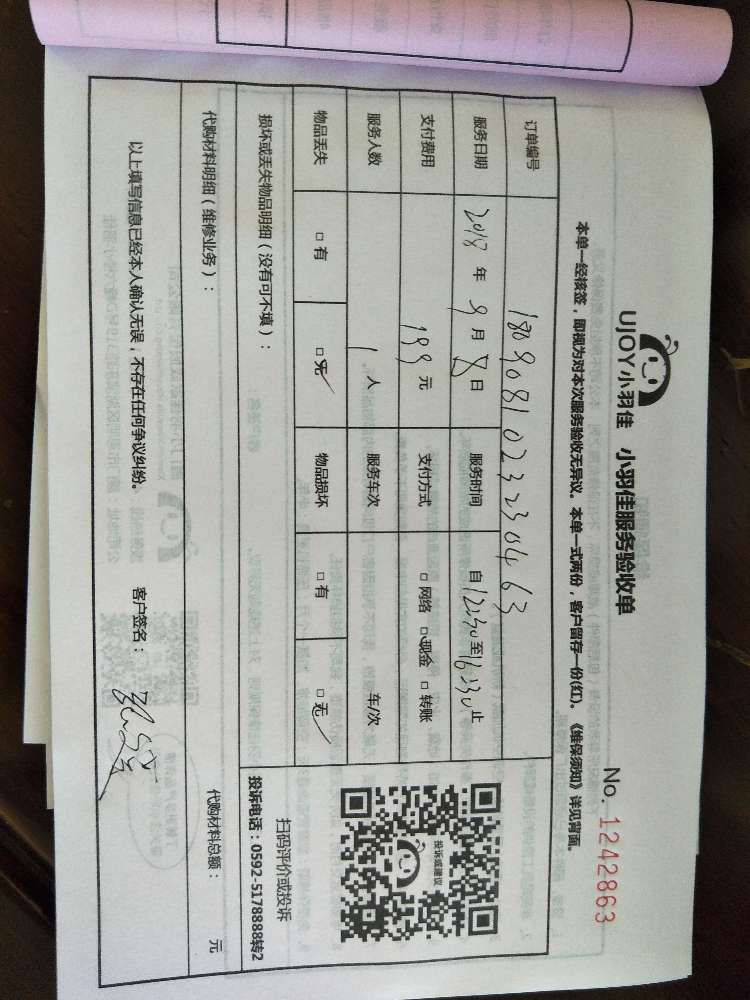 UJOY小羽佳 小羽佳服务验收单
No. 1242863
本单一经核签，即视为对本次服务验收无异议。本单一式两份，客户留存一份(红)。《维保须知》详见背面。
订单编号 1809081023230463
服务日期 2018 年 9 月 8 日 服务时间 自 12:30 至 16:30 止
支付费用 199 元 支付方式 □ 网络 □ 现金 □ 转账
服务人数 1 人 服务车次 车/次
物品丢失 □ 有 □ 无 物品损坏 □ 有 □ 无
投诉或建议
扫码评价或投诉
投诉电话：0592-5178888转2
损坏或丢失物品明细（没有可不填）：
代购材料明细（维修业务）： 代购材料总额： 元
以上填写信息已经本人确认无误，不存在任何争议纠纷。 客户签名：